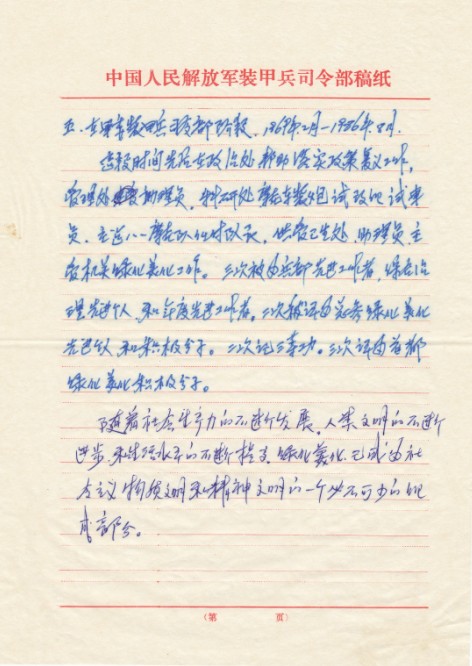 中国人民解放军装甲兵司令部稿纸
五、在军装甲兵司令部阶段，1969年2月—1986年8月。
这段时间先后在政治处帮助落实政策复议工作，
管理处助理员，科研处摩托车散包试改的试车
员，主运八一摩托队任付队长，供管卫生处，助理员主
管机关绿化美化工作。三次被兵部先进工作者，绿委治
理先进个人，和年度先进工作者。二次被评为总参绿化美化
先进个人和积极分子。二次记三等功。三次评为首都
绿化美化积极分子。
随着社会生产力的不断发展，人类文明的不断
进步，和生活水平的不断提高，绿化美化，已成为社
会主义物质文明和精神文明的一个必不可少的组
成部分。
（第 页）